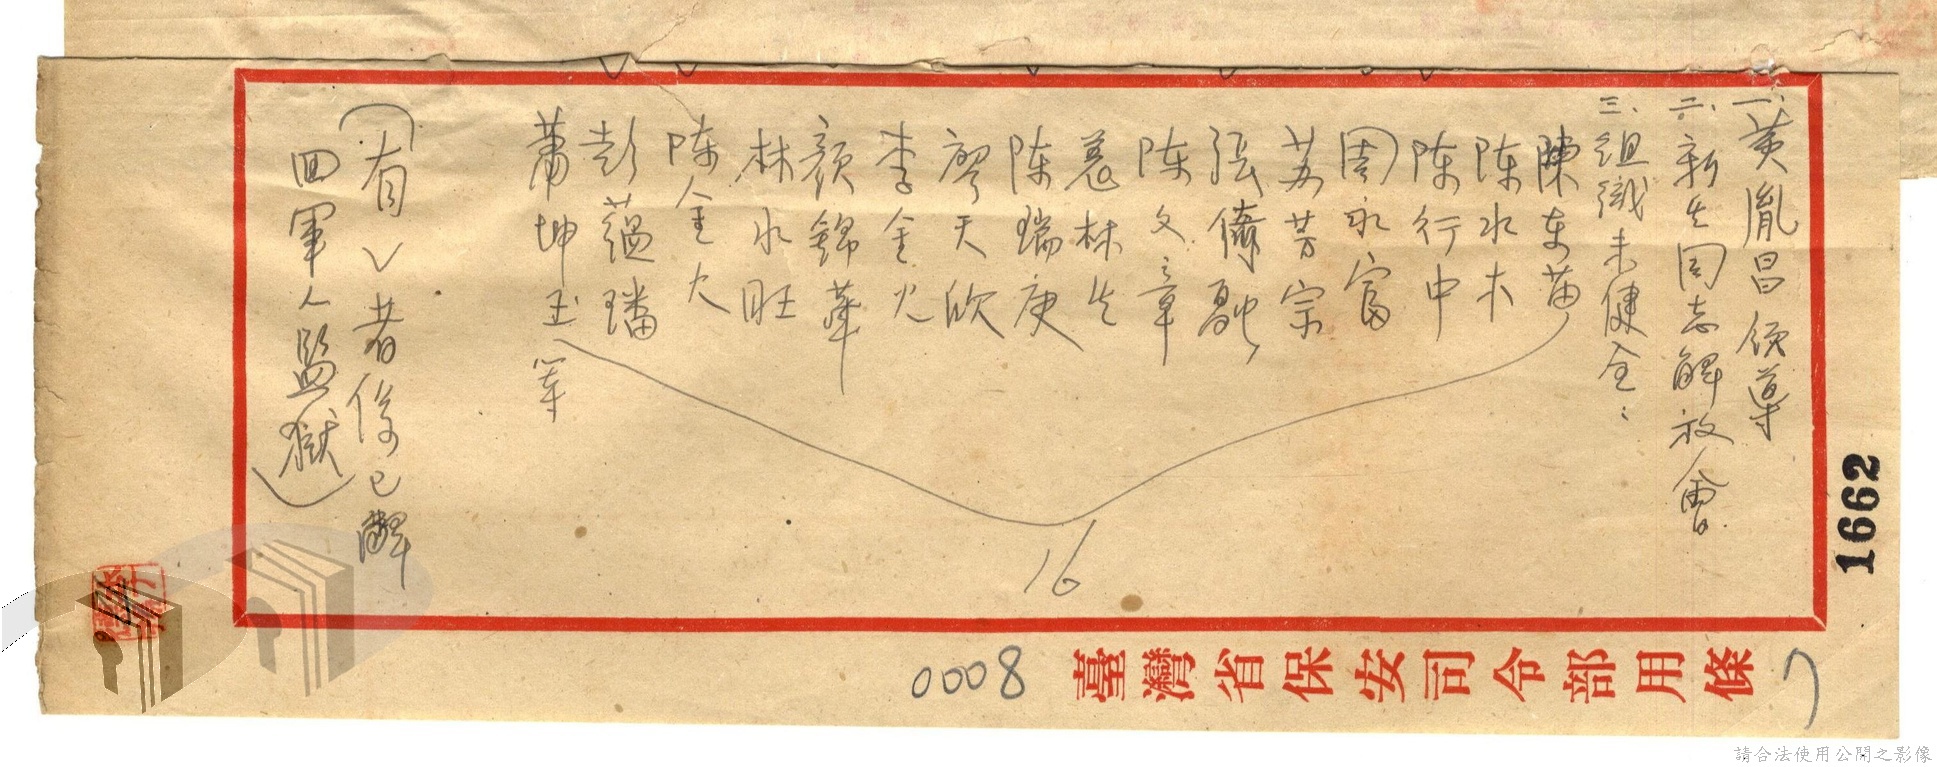 一、黃胤昌領導
二、新生同志解放會
三、組織未健全：
陳东苗
陈水木
陈行中
周永富
苏芳宗
張
陈文章
林生
陈瑞庚
廖天欣
李金火
顏錦華
林水旺
陈金火
彭蘊璠
蕭坤玉等
16
（有∨者係已解
回軍人監獄）
1662
0008
臺灣省保安司令部用條
請合法使用公開之影像